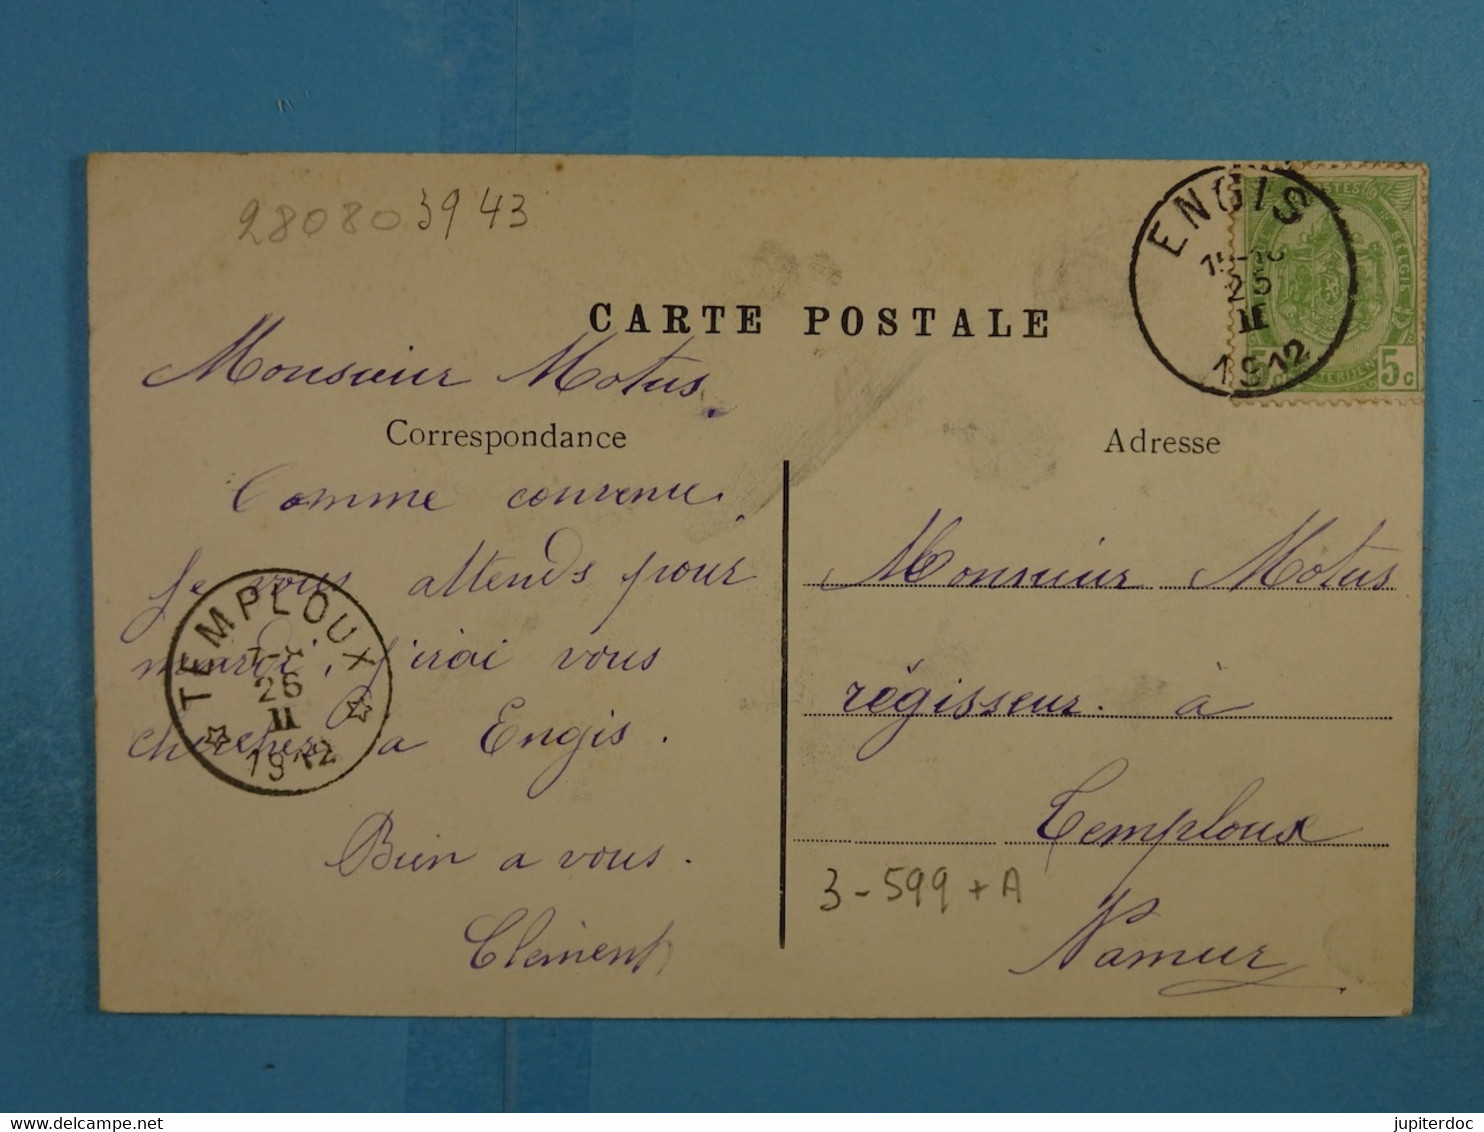 28080 3943
CARTE POSTALE
Monsieur Motus.
Correspondance
Comme convenu.
Je vous attends pour
mardi, j'irai vous
chercher a Engis.
Bien a vous.
Clément
TEMPLOUX
26
II
1912
ENGIS
25
II
1912
POSTES
BELGIE
5c
Adresse
Monsieur Motus
régisseur. à
Temploux
Namur
3-599+A
jupiterdoc